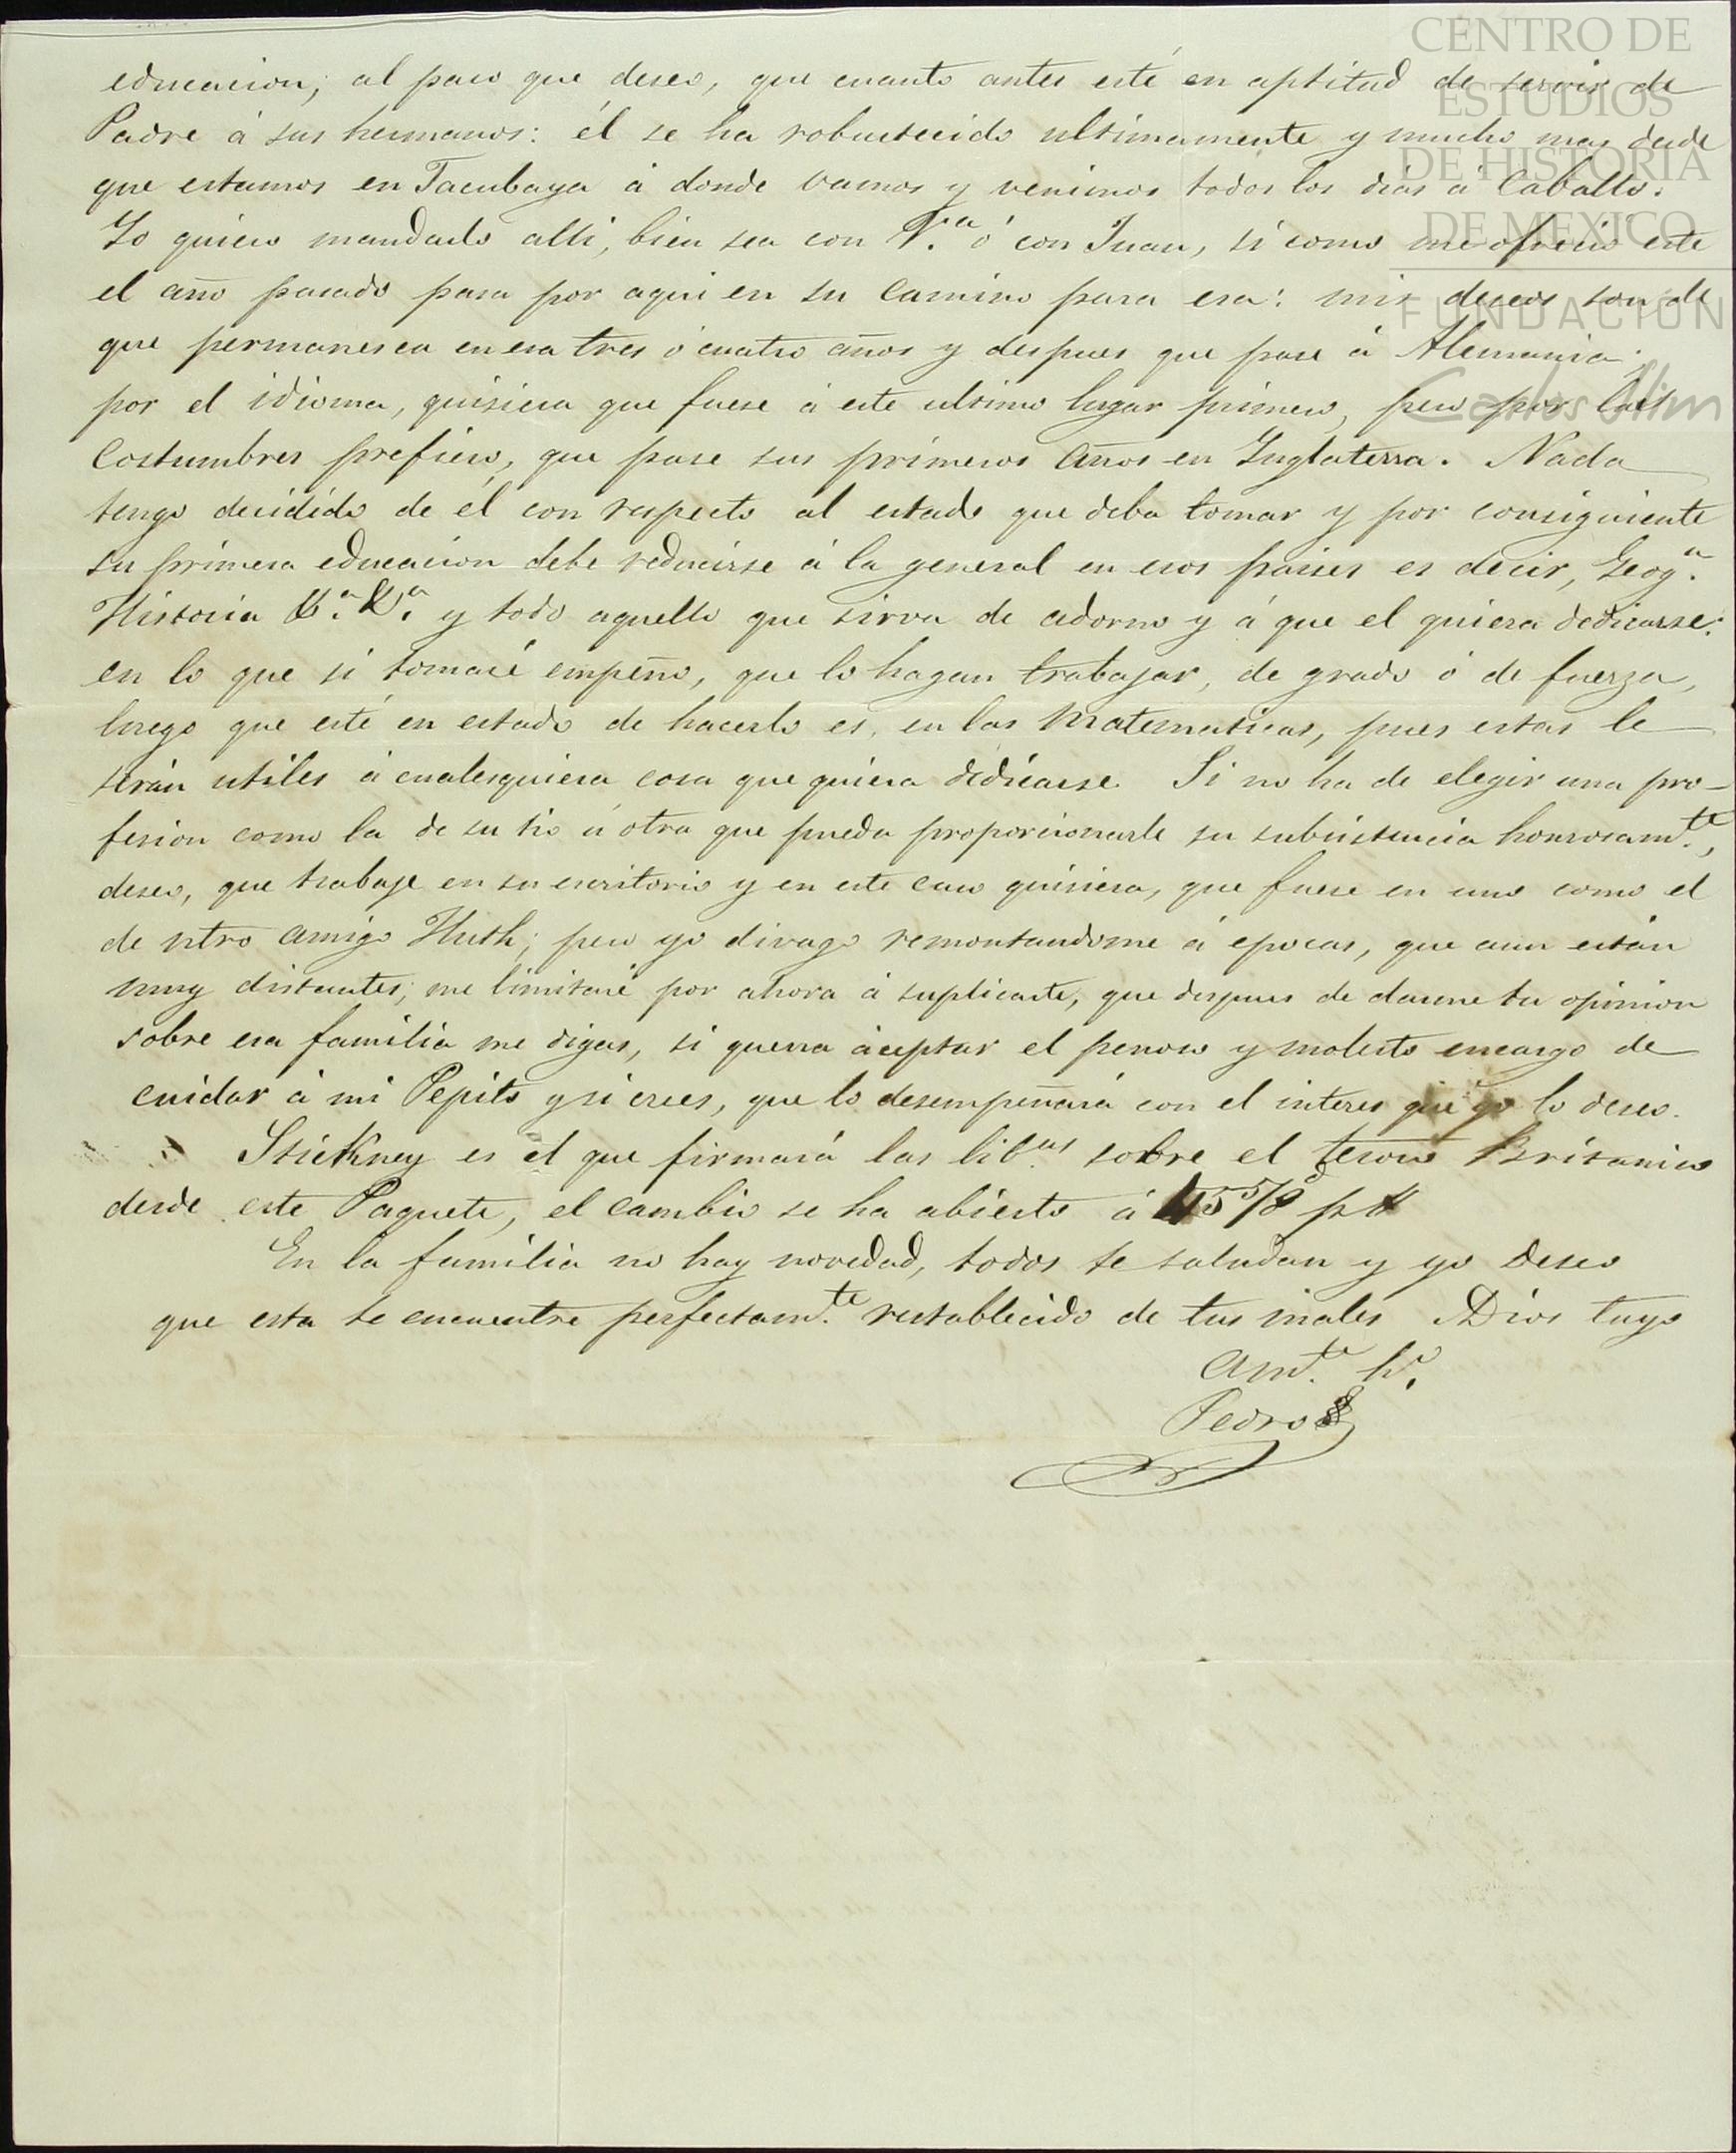 CENTRO DE
ESTUDIOS
DE HISTORIA
DE MEXICO
FUNDACIÓN
Carlos Slim
educacion; al paso que deseo, que cuanto antes esté en aptitud de servir de
Padre á sus hermanos: él se ha robustecido ultimamente y mucho mas desde
que estamos en Tacubaya á donde vamos y venimos todos los dias á Caballo.
Yo quiero mandarlo alli, bien sea con V.ª ó con Juan, si como me ofreció este
el año pasado pasa por aqui en su camino para esa: mis deseos son de
que permanesca en esa tres ó cuatro años y despues que pase á Alemania:
por el idioma, quisiera que fuese á este ultimo lugar primero, pero por las
Costumbres prefiero, que pase sus primeros años en Inglaterra. Nada
tengo decidido de él con respecto al estado que deba tomar y por consiguiente
su primera educacion debe reducirse á la general en esos paises es decir, Geog.ª
Historia &.ª &.ª y todo aquello que sirva de adorno y á que el quiera dedicarse:
en lo que si tomaré empeño, que lo hagan trabajar, de grado ó de fuerza,
luego que esté en estado de hacerlo es, en las Matematicas, pues estas le
serán utiles á cualesquiera cosa que quiera dedicarse. Si no ha de elegir una pro-
fesion como la de su tio ú otra que pueda proporcionarle su subsistencia honrosam.te,
deseo, que trabaje en su escritorio y en este caso quisiera, que fuese en uno como el
de ntro amigo Huth; pero yo divago remontandome á epocas, que aun están
muy distantes; me limitaré por ahora á suplicarte, que despues de darme tu opinion
sobre esa familia me digas, si querra aceptar el penoso y molesto encargo de
cuidar á mi Pepito y si crees, que lo desempeñará con el interes que yo lo deseo.
Stickney es el que firmará las lib.as sobre el tesoro Britanico
desde este Paquete, el cambio se ha abierto á 45 5/8 d p $
En la familia no hay novedad, todos te saludan y yo deseo
que esta te encuentre perfectam.te restablecido de tus males. A Dios tuyo
am.te h.º
Pedro